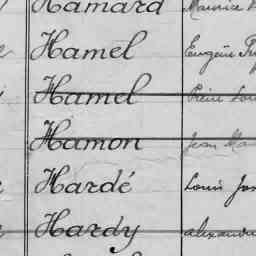 Hamard Maurice
Hamel Eugène
Hamel
Hamon Jean
Hardé Louis
Hardy Alexandre